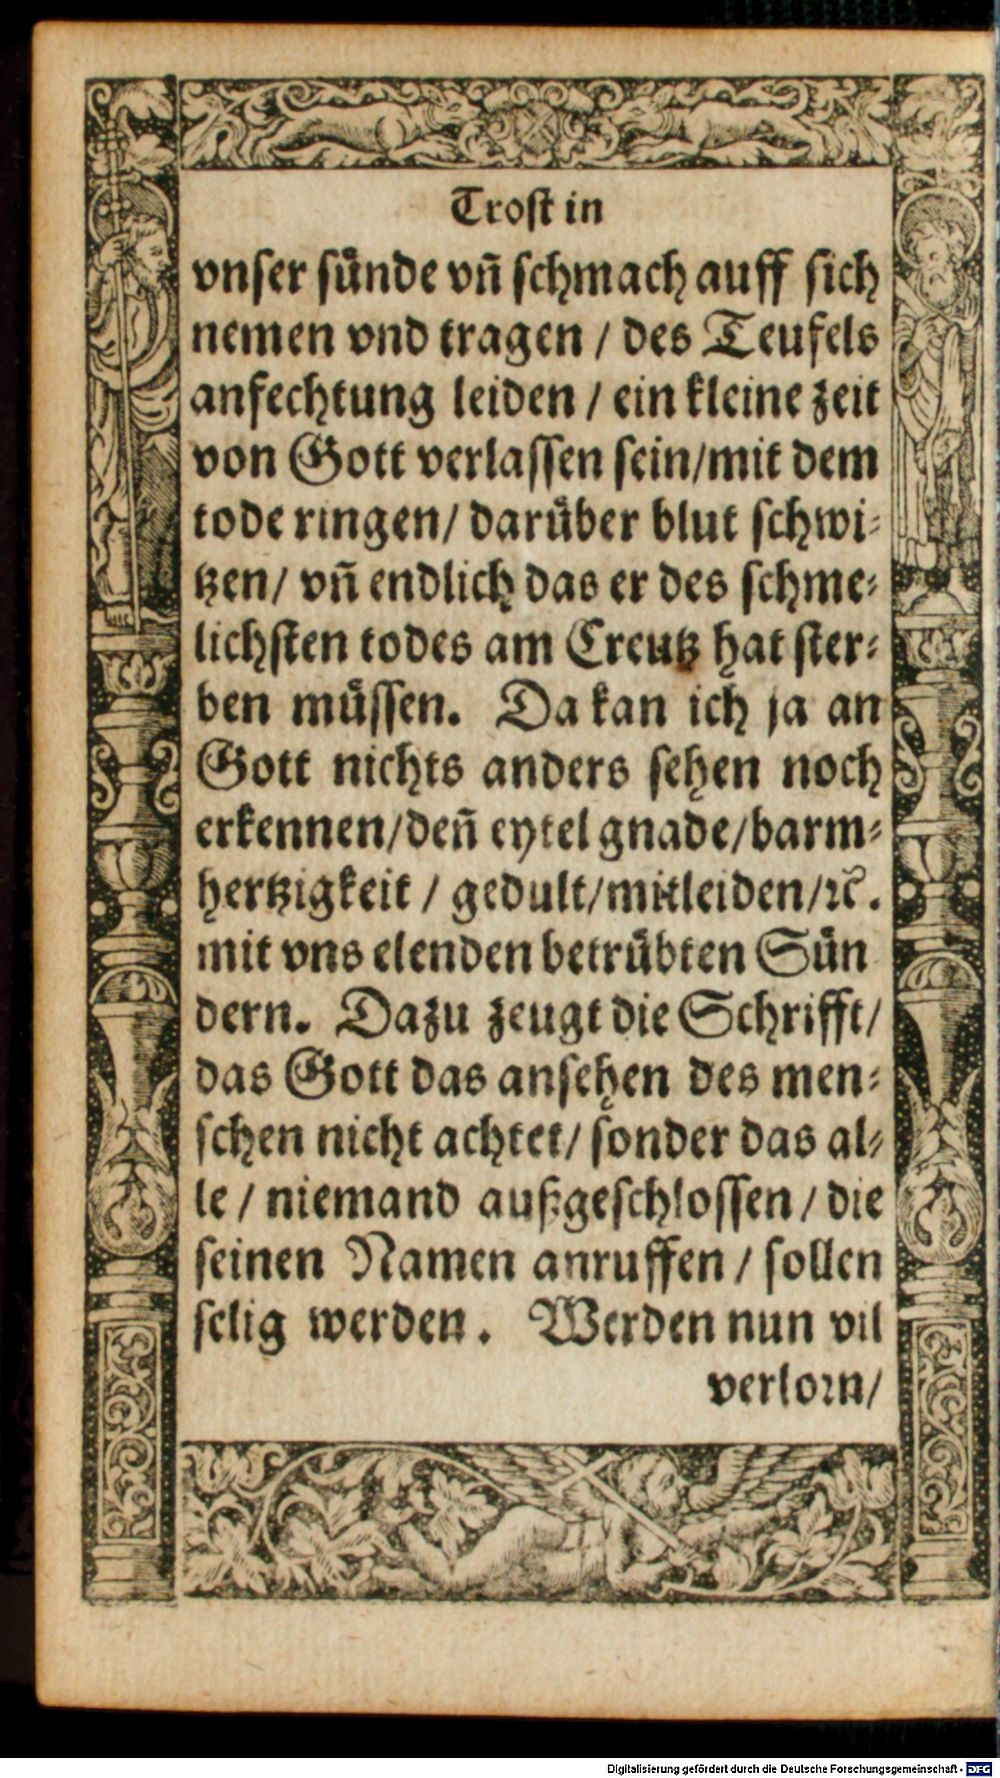 Troſt in
vnſer ſünde vñ ſchmach auff ſich
nemen vnd tragen / des Teufels
anfechtung leiden / ein kleine zeit
von Gott verlaſſen ſein/mit dem
tode ringen/ darüber blut ſchwi⸗
tzen/ vñ endlich das er des ſchme⸗
lichſten todes am Creutz hat ſter⸗
ben müſſen. Da kan ich ja an
Gott nichts anders ſehen noch
erkennen/deñ eytel gnade/barm⸗
hertzigkeit / gedult/mitleiden/ꝛc̃.
mit vns elenden betrübten Sün
dern. Dazu zeugt die Schrifft/
das Gott das anſehen des men⸗
ſchen nicht achtet/ ſonder das al⸗
le / niemand außgeſchloſſen / die
ſeinen Namen anruffen / ſollen
ſelig werden. Werden nun vil
verloꝛn/
Digitalisierung gefördert durch die Deutsche Forschungsgemeinschaft - DFG